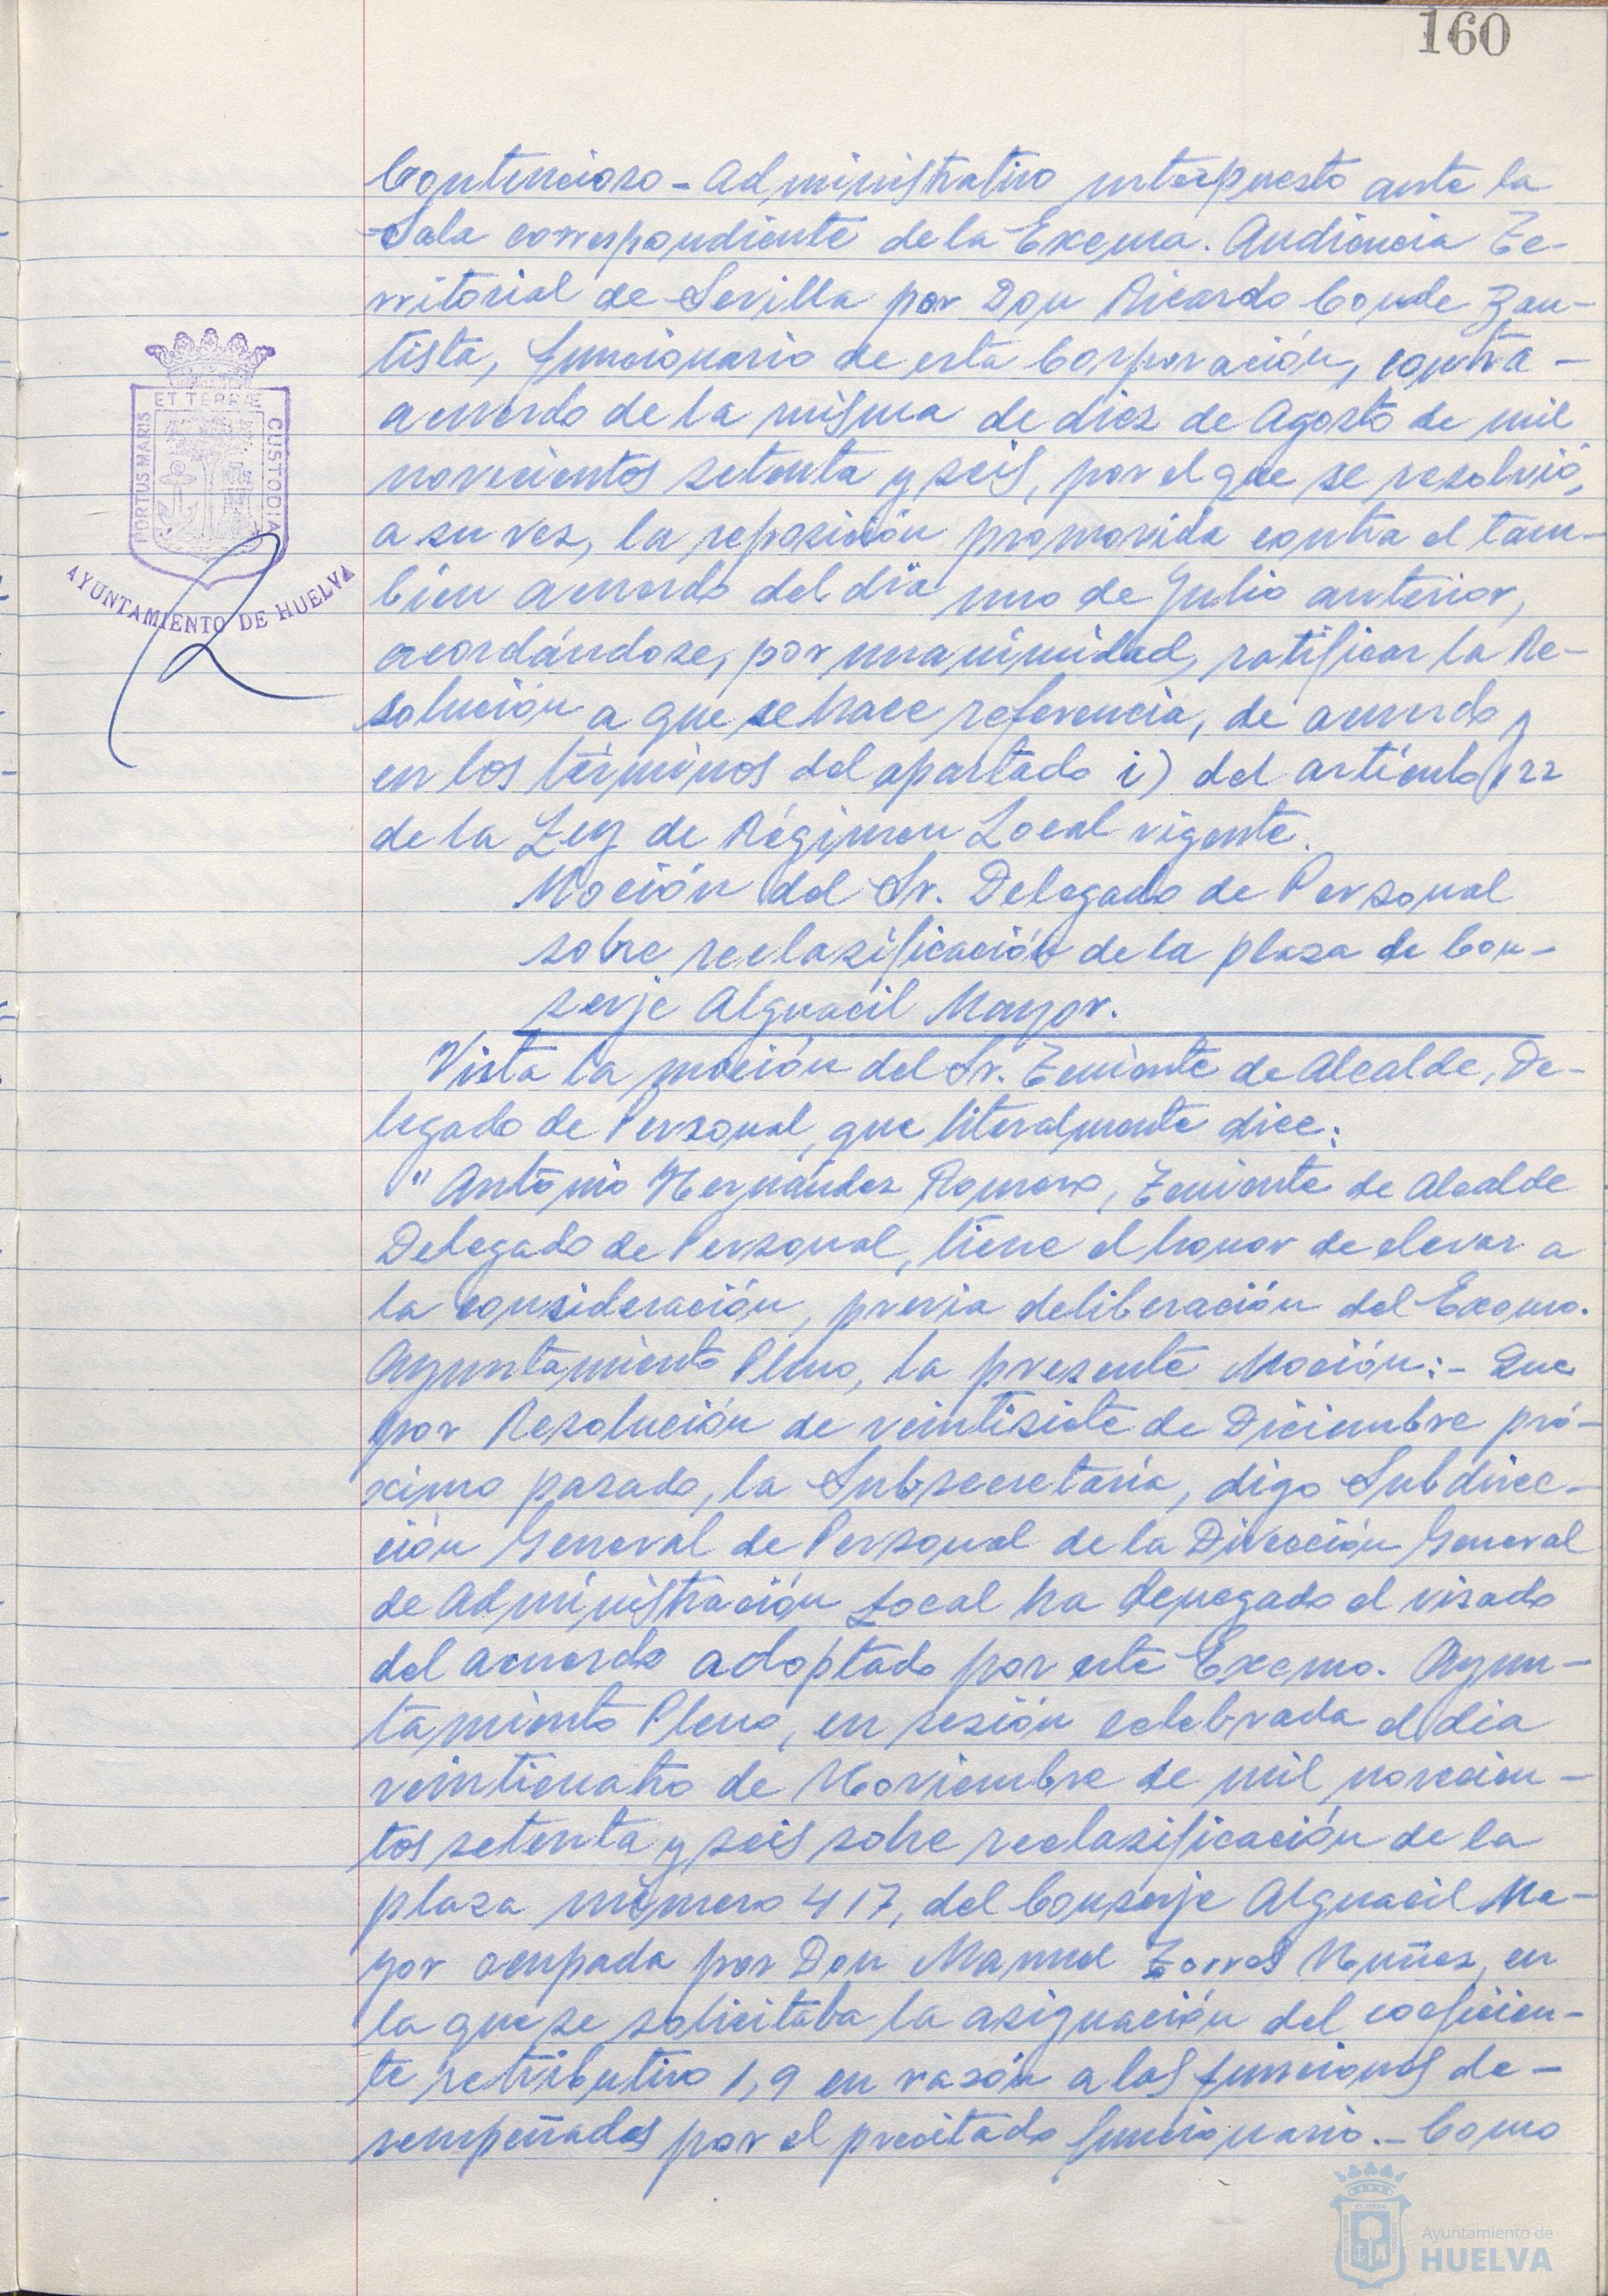 160
Contencioso-Administrativo interpuesto ante la
Sala correspondiente de la Excma. Audiencia Te-
rritorial de Sevilla por Don Ricardo Conde
tista, funcionario de esta Corporación, contra -
acuerdo de la misma de diez de Agosto de mil
novecientos setenta y seis, por el que se resolvió,
a su vez, la reposición promovida contra el tam-
bien acuerdo del día uno de Julio anterior,
acordándose, por unanimidad, ratificar la Re-
solución a que se hace referencia, de acuerdo y
en los términos del apartado i) del artículo 122
de la Ley de Régimen Local vigente.
Moción del Sr. Delegado de Personal
sobre reclasificación de la plaza de Con-
serje Alguacil Mayor.
Vista la moción del Sr. Teniente de Alcalde, De-
legado de Personal, que literalmente dice:
"Antonio Hernández Romero, Teniente de Alcalde
Delegado de Personal, tiene el honor de elevar a
la consideración, previa deliberación del Excmo.
Ayuntamiento Pleno, la presente Moción:- Que
por Resolución de veintisiete de Diciembre pró-
ximo pasado, la Subsecretaría, digo Subdirec-
ción General de Personal de la Dirección General
de Administración Local ha denegado el visado
del acuerdo adoptado por este Excmo. Ayun-
tamiento Pleno, en sesión celebrada el dia
veinticuatro de Noviembre de mil novecien-
tos setenta y seis sobre reclasificación de la
plaza número 417, del Conserje Alguacil Ma-
yor ocupada por Don Manuel Torres Nuñez, en
la que se solicitaba la asignación del coeficien-
te retributivo 1,9 en razón a las funciones de-
sempeñadas por el precitado funcionario.- Como
PORTUS MARIS ET TERRÆ CUSTODIA
AYUNTAMIENTO DE HUELVA
Ayuntamiento de
HUELVA